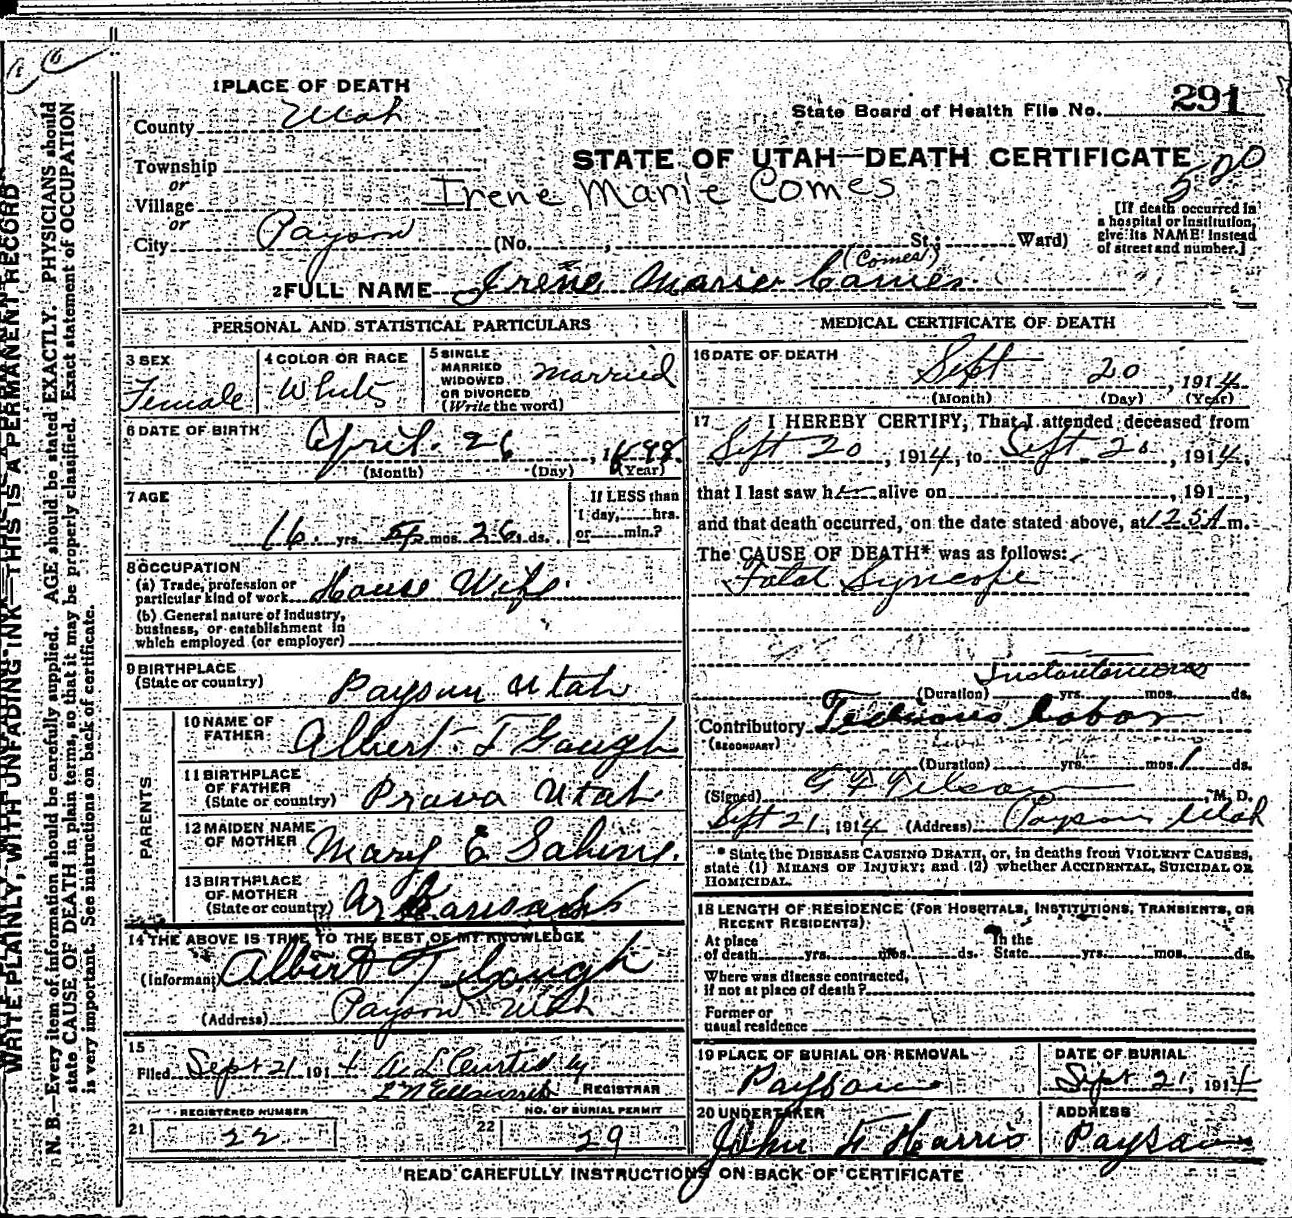 1 PLACE OF DEATH
County Utah
State Board of Health File No. 291
Township
STATE OF UTAH—DEATH CERTIFICATE
520
or
Village
Irene Marie Comes
or
City Payson (No. , St.; Ward)
[If death occurred in a hospital or institution, give its NAME instead of street and number.]
(Comes)
2 FULL NAME Irene Marie Comes
PERSONAL AND STATISTICAL PARTICULARS
3 SEX Female
4 COLOR OR RACE White
5 SINGLE MARRIED WIDOWED OR DIVORCED (Write the word) Married
6 DATE OF BIRTH April 26, 1898
(Month) (Day) (Year)
7 AGE
16 yrs. mos. 26 ds.
If LESS than 1 day, hrs. or min.?
8 OCCUPATION
(a) Trade, profession or particular kind of work House Wife
(b) General nature of industry, business, or establishment in which employed (or employer)
9 BIRTHPLACE
(State or country) Payson Utah
PARENTS
10 NAME OF FATHER Albert T Gough
11 BIRTHPLACE OF FATHER (State or country) Provo Utah
12 MAIDEN NAME OF MOTHER Mary E Sabin
13 BIRTHPLACE OF MOTHER (State or country) Arkansas
14 THE ABOVE IS TRUE TO THE BEST OF MY KNOWLEDGE
(Informant) Albert T Gough
(Address) Payson Utah
15
Filed Sept 21 1914 A. L. Curtis by
REGISTRAR
REGISTERED NUMBER
21 22
NO. OF BURIAL PERMIT
22 29
MEDICAL CERTIFICATE OF DEATH
16 DATE OF DEATH
Sept 20, 1914
(Month) (Day) (Year)
17 I HEREBY CERTIFY, That I attended deceased from
Sept 20, 1914, to Sept. 20, 1914,
that I last saw her alive on , 191 ,
and that death occurred, on the date stated above, at m.
The CAUSE OF DEATH* was as follows:
Fatal Syncope
Instantaneous
(Duration) yrs. mos. ds.
Contributory Tedious Labor
(SECONDARY)
(Duration) yrs. mos. 1 ds.
(Signed) , M. D.
Sept 21, 1914 (Address) Payson Utah
* State the DISEASE CAUSING DEATH, or, in deaths from VIOLENT CAUSES, state (1) MEANS OF INJURY; and (2) whether ACCIDENTAL, SUICIDAL OR HOMICIDAL.
18 LENGTH OF RESIDENCE (FOR HOSPITALS, INSTITUTIONS, TRANSIENTS, OR RECENT RESIDENTS)
At place of death yrs. mos. ds. In the State yrs. mos. ds.
Where was disease contracted, if not at place of death?
Former or usual residence
19 PLACE OF BURIAL OR REMOVAL
Payson
DATE OF BURIAL
Sept 21, 1914
20 UNDERTAKER
John F Harris
ADDRESS
Payson
READ CAREFULLY INSTRUCTIONS ON BACK OF CERTIFICATE
WRITE PLAINLY, WITH UNFADING INK—THIS IS A PERMANENT RECORD
N. B.—Every item of information should be carefully supplied. AGE should be stated EXACTLY. PHYSICIANS should
state CAUSE OF DEATH in plain terms, so that it may be properly classified. Exact statement of OCCUPATION
is very important. See instructions on back of certificate.